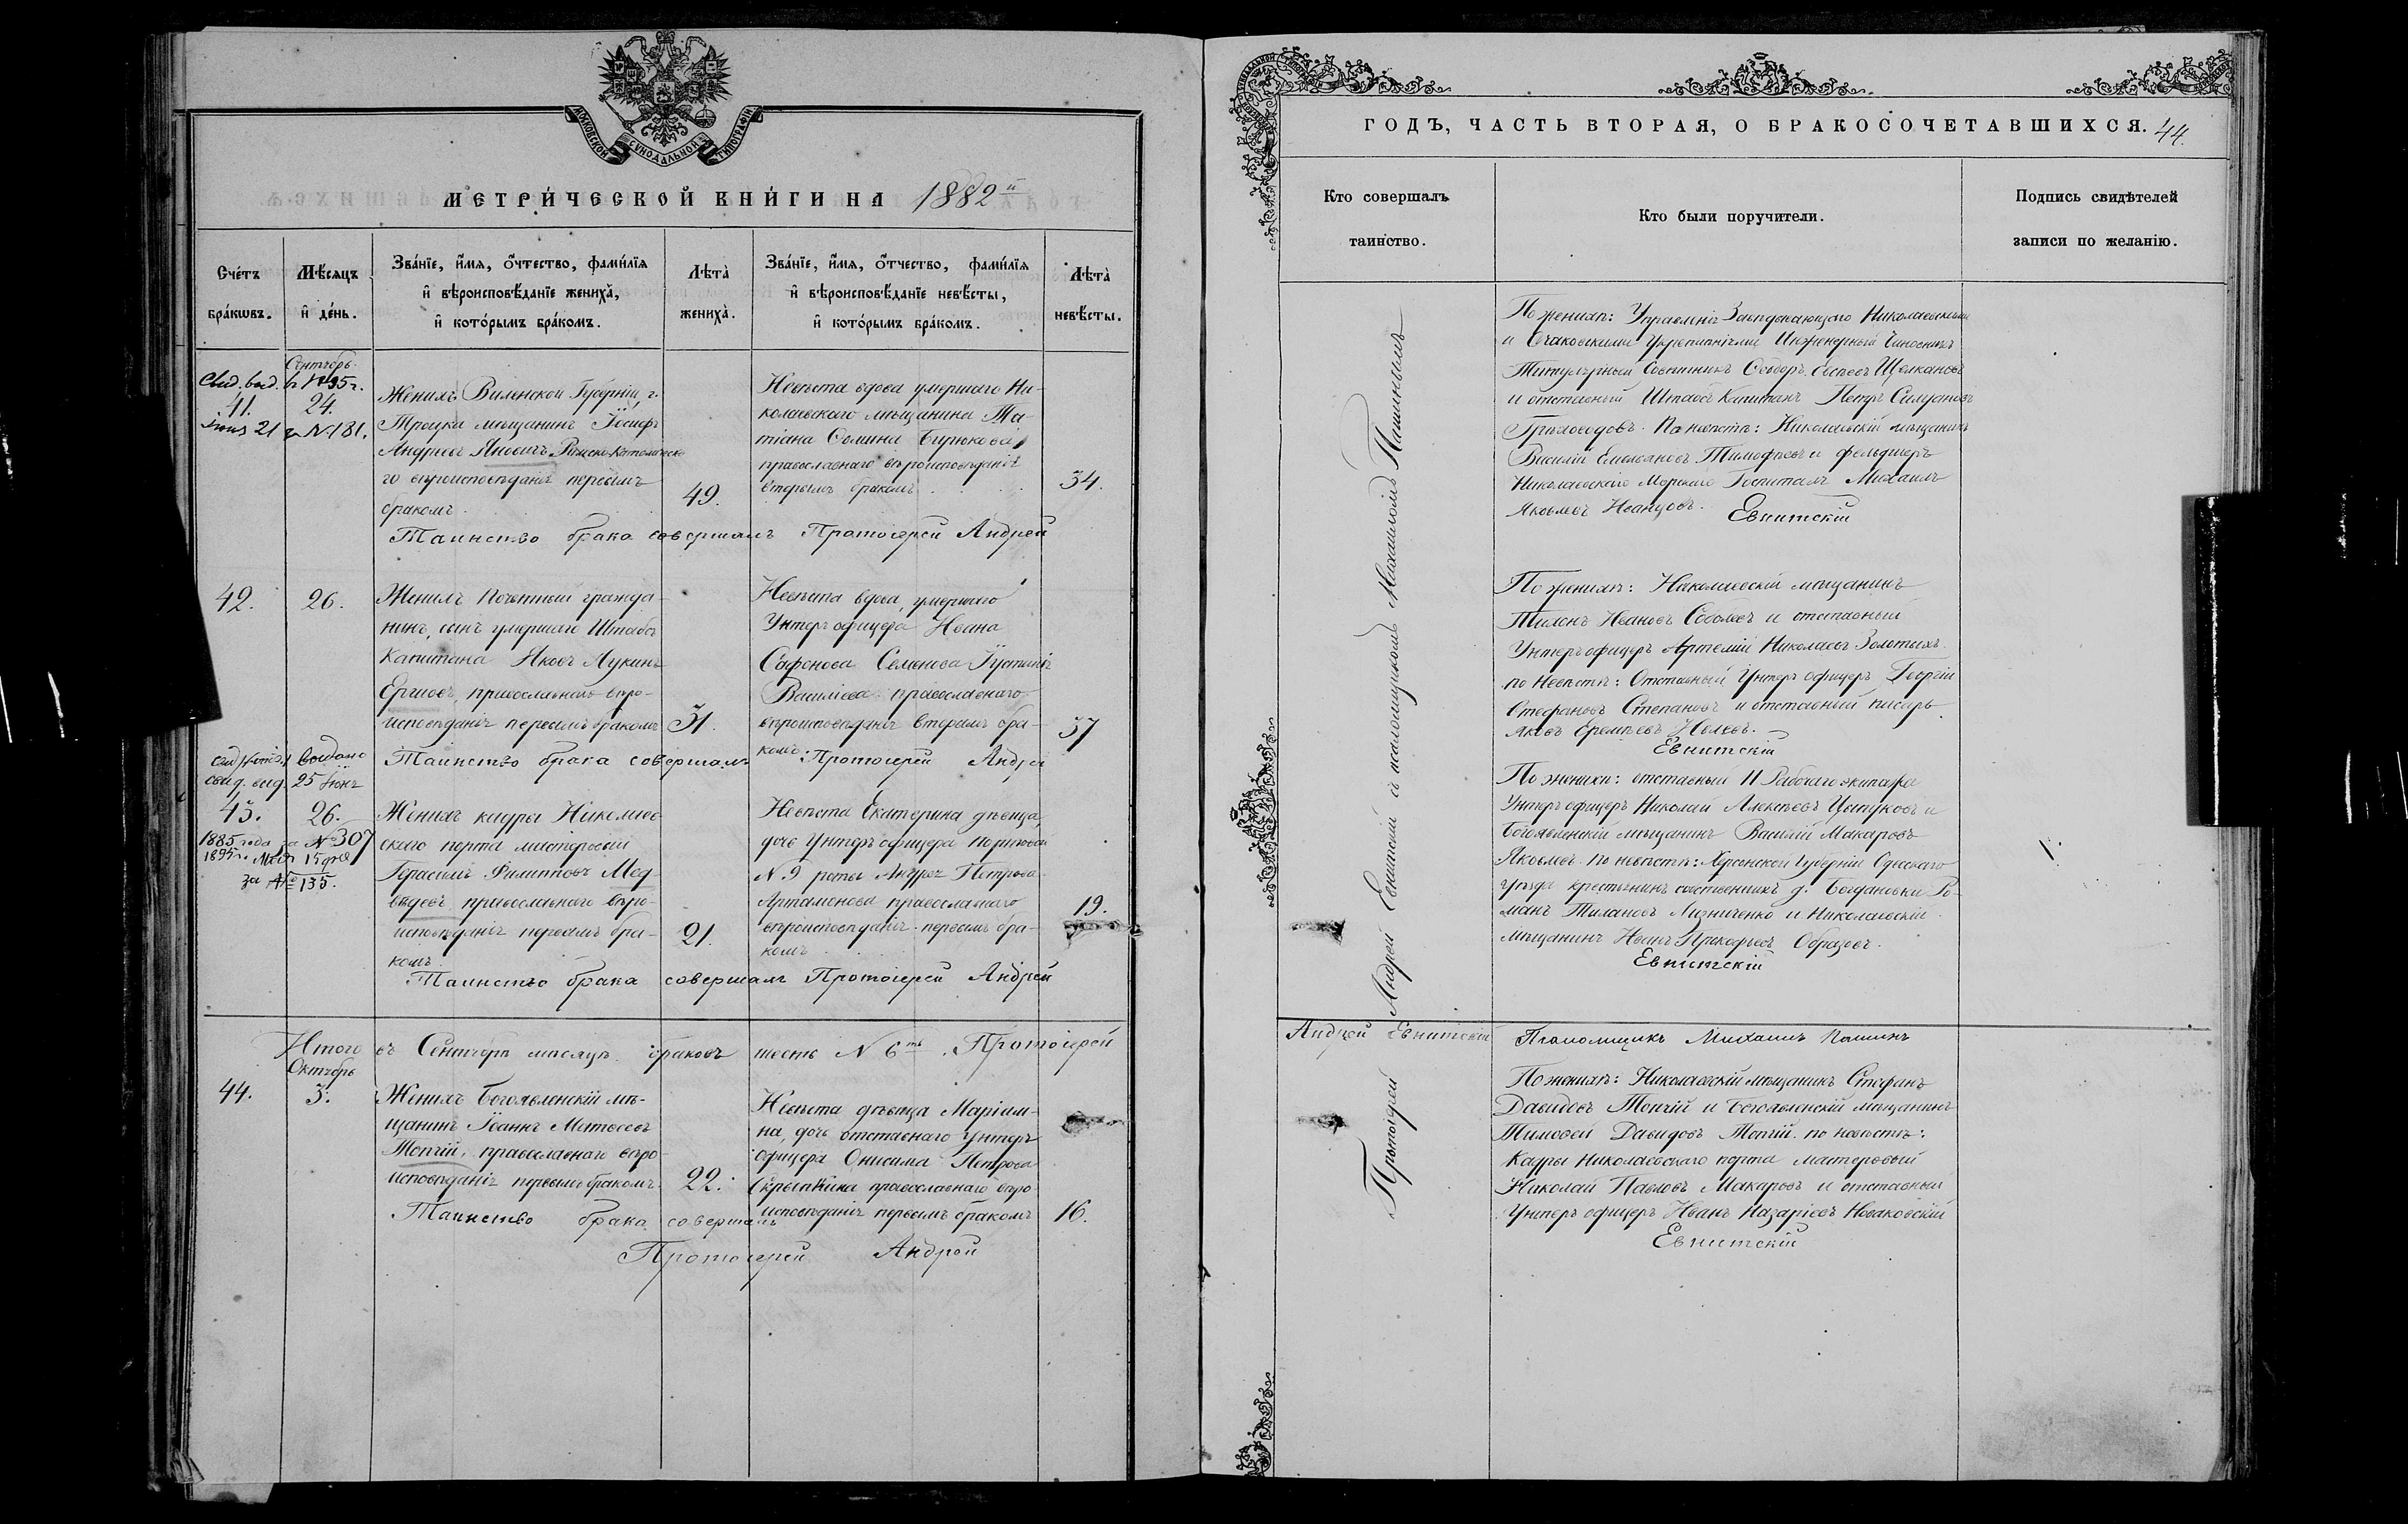 МОСКОВСКОЙ СѴНОДАЛЬНОЙ ТИПОГРАФІИ
МЕТРИ́ЧЕСКОЙ КНИ́ГИ НА 1882 й
Сче́тъ бра́кωвъ.
Мѣ́сяцъ и де́нь.
Зва́нїе, и́мя, о́тчество, фами́лїя
и вѣроисповѣ́данїе жениха̀,
и кото́рымъ бра́комъ.
Лѣта̀ жениха̀.
Зва́нїе, и́мя, о́тчество, фами́лїя
и вѣроисповѣ́данїе невѣ́сты,
и кото́рымъ бра́комъ.
Лѣта̀ невѣ́сты.
Сентябрь
Свид. выд.
41.
24.
іюня 21 за № 181.
Женихъ Виленской Губерніи, г.
Трокъ мѣщанинъ Іосифъ
Андреевъ Яновичъ Римско-Католическа-
го вѣроисповѣданія первымъ
бракомъ.
49.
Невѣста вдова умершаго Ни-
колаевскаго мѣщанина Та-
тіана Ѳомина Бирюкова
православнаго вѣроисповѣданія
вторымъ бракомъ
34.
Таинство брака совершалъ Протоіерей Андрей
42.
26.
Женихъ Почетный гражда-
нинъ, сынъ умершаго Штабсъ
Капитана Яковъ Лукинъ
православнаго вѣро-
исповѣданія первымъ бракомъ
31.
Невѣста вдова, умершаго
Унтеръ офицера Ивана
Сафонова Семенова Іустинія
Василіева православнаго
вѣроисповѣданія вторымъ бра-
комъ.
37
Таинство брака совершалъ Протоіерей Андрей
свид. выд. 25 Іюня
43.
26.
1885 года за № 307
1895 г. Мая 15 дня
за № 135.
Женихъ кадры Николаев-
скаго порта мастеровый
Герасимъ Филиповъ Мед-
вѣдевъ православнаго вѣро-
исповѣданія первымъ бра-
комъ
21.
Невѣста Екатерина дѣвица,
дочь Унтеръ офицера портовой
№ 9 роты Андрея Петрова
Артамонова православнаго
вѣроисповѣданія первымъ бра-
комъ
19.
Таинство брака совершалъ Протоіерей Андрей
Итого въ Сентябрѣ мѣсяцѣ браковъ шесть № 6ть. Протоіерей
Октябрь
44.
3.
Женихъ Богоявленскій мѣ-
щанинъ Іоаннъ Матвеевъ
Топчій, православнаго вѣро-
исповѣданія первымъ бракомъ
22.
Невѣста дѣвица Маріам-
на, дочь отставнаго унтеръ
офицера Онисима Петрова
Скрыпкина православнаго вѣро-
исповѣданія первымъ бракомъ
16.
Таинство брака совершалъ
Протоіерей Андрей
ГОДЪ, ЧАСТЬ ВТОРАЯ, О БРАКОСОЧЕТАВШИХСЯ. 44.
Кто совершалъ
таинство.
Кто были поручители.
Подпись свидѣтелей
записи по желанію.
Протоіерей Андрей Евнитскій съ псаломщикомъ Михаиломъ Пашинымъ
По женихѣ: Управленія Завѣдывающаго Николаевскими
и Очаковскими Укрѣпленіями Инженерный Чиновникъ
Титулярный Совѣтникъ Ѳеодоръ
и отставной Штабсъ Капитанъ Петръ
По невѣстѣ: Николаевскій мѣщанинъ
Василій Емельяновъ Тимофеевъ и фельдшеръ
Николаевскаго Морскаго Госпиталя Михаилъ
Яковлевъ Иванцовъ. Евнитскій
По женихѣ: Николаевскій мѣщанинъ
Тихонъ Ивановъ Соболевъ и отставный
Унтеръ офицеръ Артемій Николаевъ Золотыхъ
по Невѣстѣ: Отставный Унтеръ офицеръ Георгій
Стефановъ Степановъ и отставный писарь
Яковъ Еремѣевъ
Евнитскій
По женихѣ: отставный 11 Рабочаго экипажа
Унтеръ офицеръ Николай Алексѣевъ Цыпуковъ и
Богоявленскій мѣщанинъ Василій Макаровъ
Яковлевъ. по невѣстѣ: Херсонской Губерніи Одесскаго
уѣзда крестьянинъ собственникъ д. Богдановки Ро-
манъ Лизниченко и Николаевскій
мѣщанинъ Иванъ Прокофьевъ Образовъ.
Евнитскій
Андрей Евнитскій Псаломщикъ Михаилъ Пашинъ
По женихѣ: Николаевскій мѣщанинъ Стефанъ
Давидовъ Топчій и Богоявленскій мѣщанинъ
Тимоѳей Давидовъ Топчій. по невѣстѣ:
Кадры Николаевскаго порта мастеровый
Николай Павловъ Макаровъ и отставный
Унтеръ офицеръ Иванъ Назаріевъ Новаковскій
Евнитскій